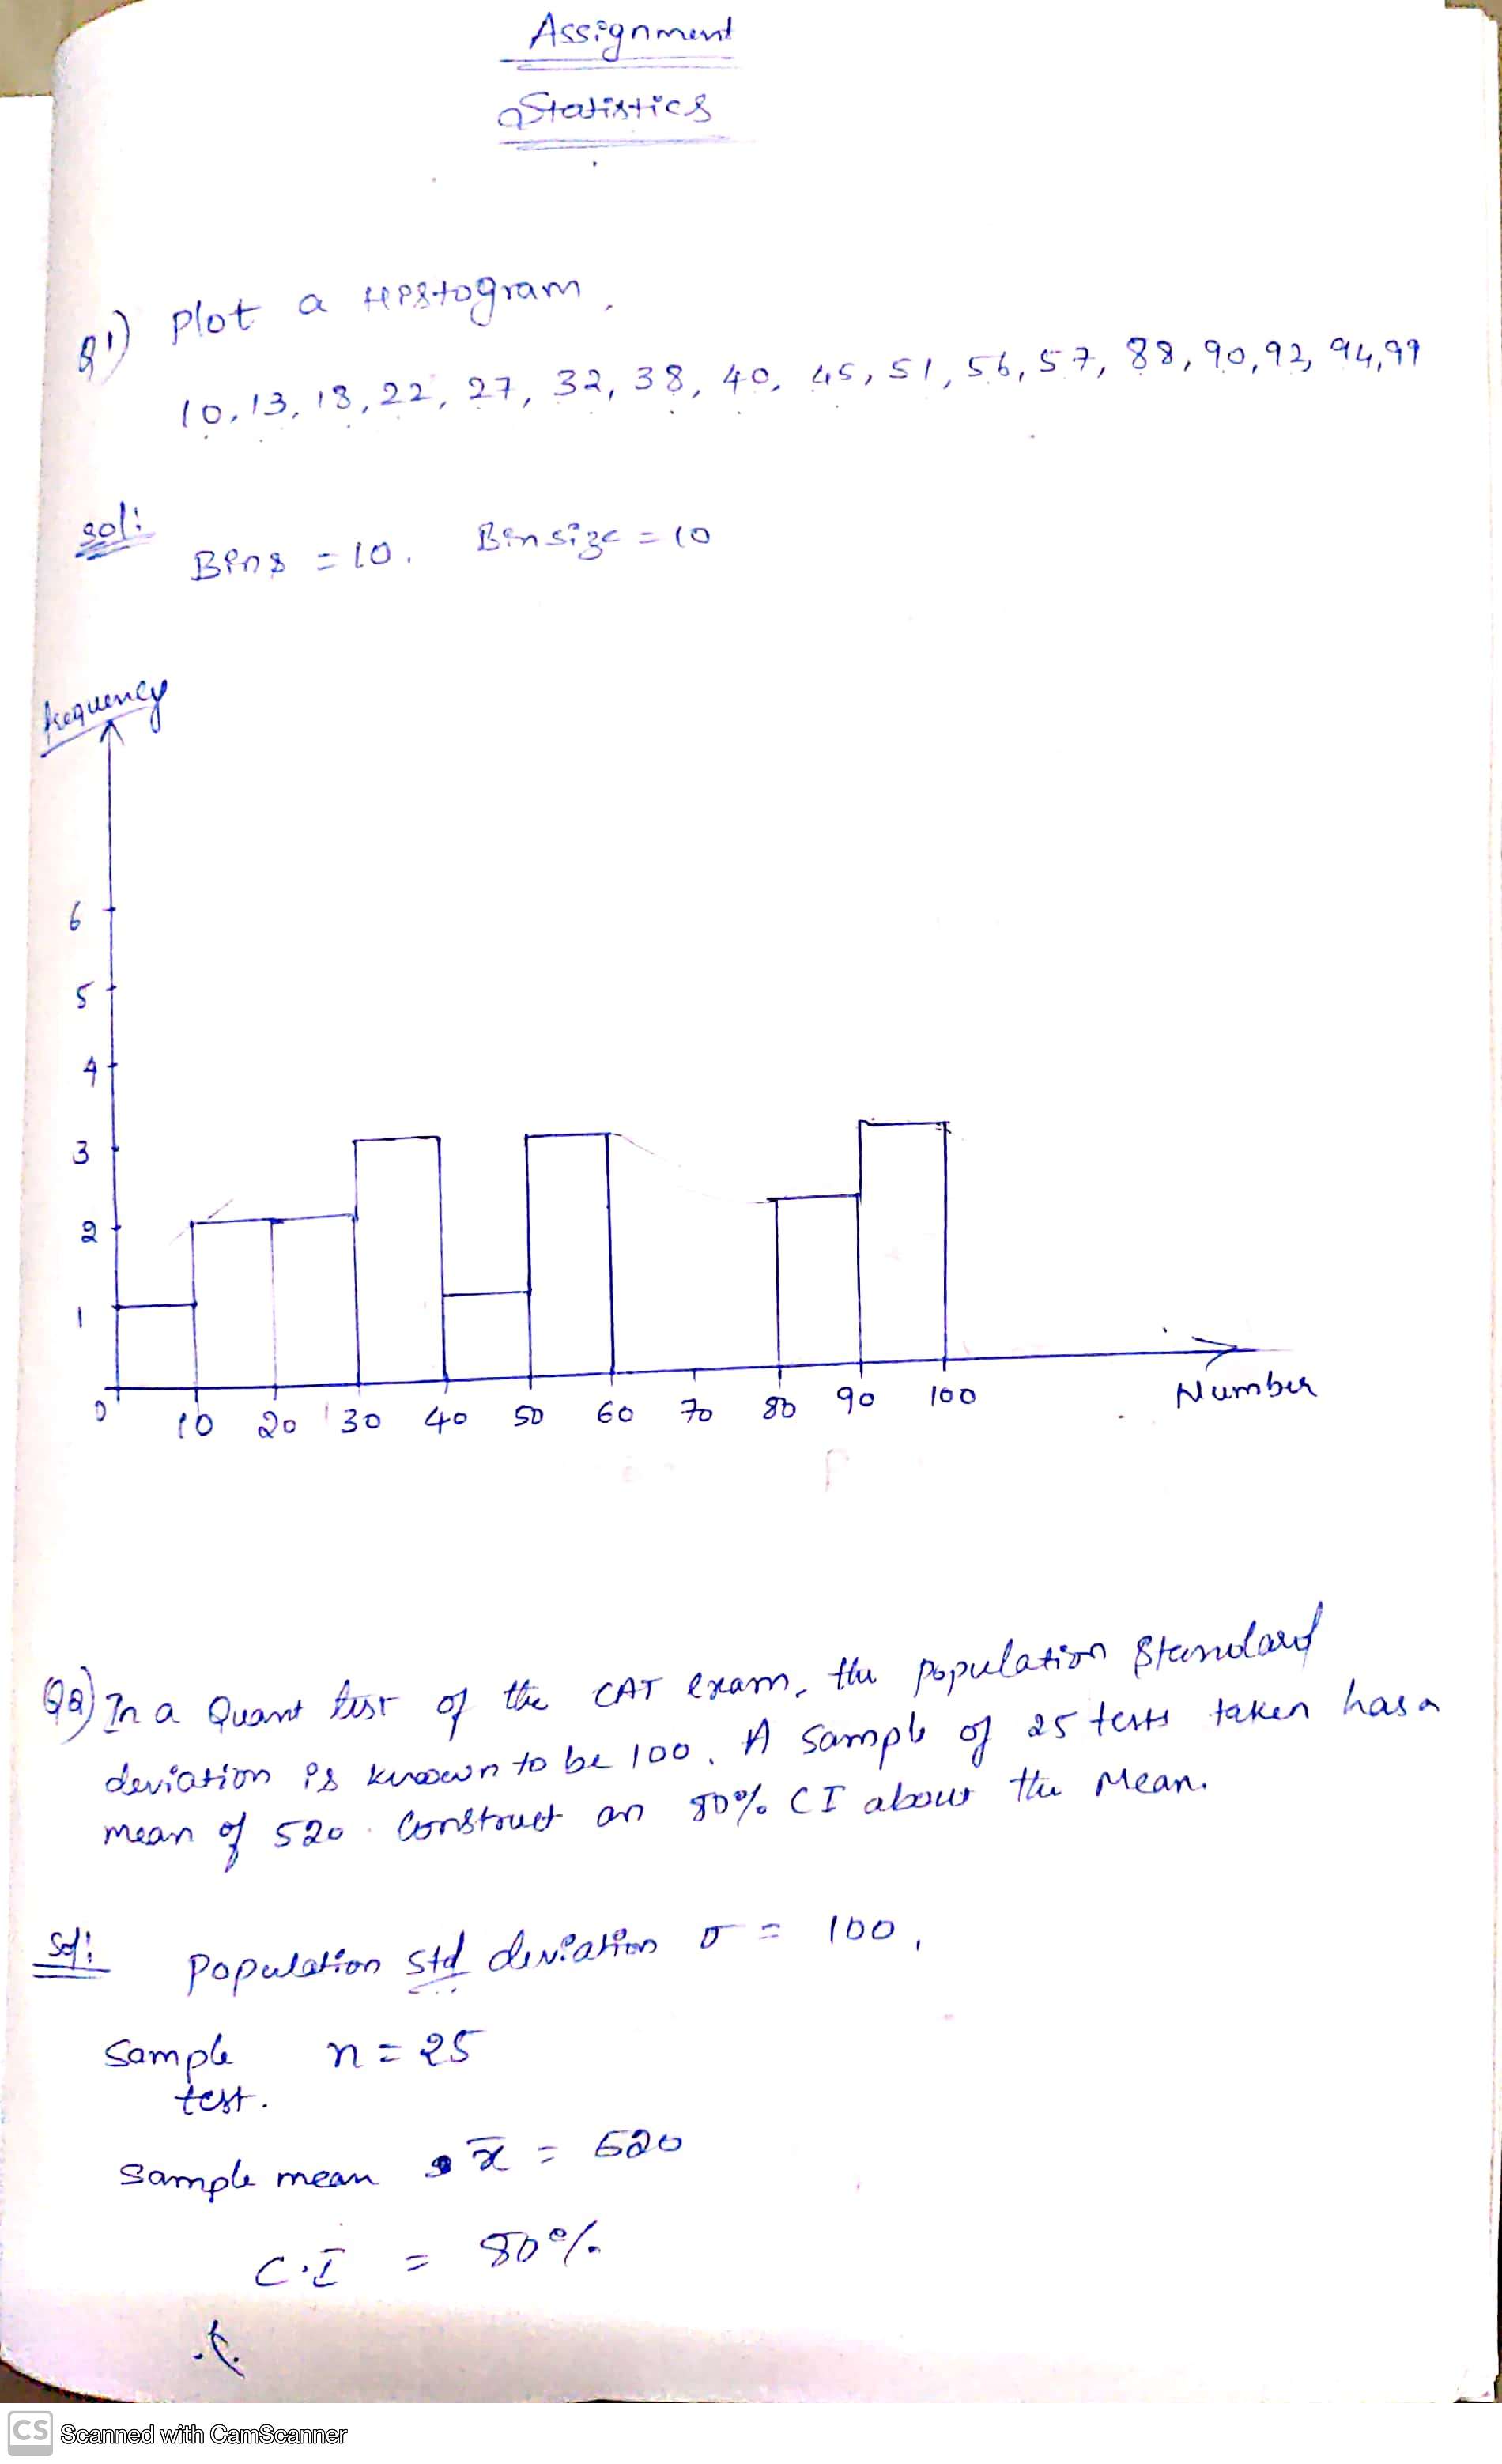 Assignment
Statistics
Q1) Plot a Histogram.
10, 13, 18, 22, 27, 32, 38, 40, 45, 51, 56, 57, 88, 90, 92, 94, 99
Sol:
Bins = 10. Bin size = 10
frequency
6
5
4
3
2
1
0 10 20 30 40 50 60 70 80 90 100 Number
Q2) In a Quant test of the CAT exam, the population Standard
deviation is known to be 100. A sample of 25 tests taken has a
mean of 520. Construct an 80% CI about the Mean.
Sol:
Population std deviation σ = 100,
Sample n = 25
test.
Sample mean x̄ = 520
C.I = 80%
CS Scanned with CamScanner